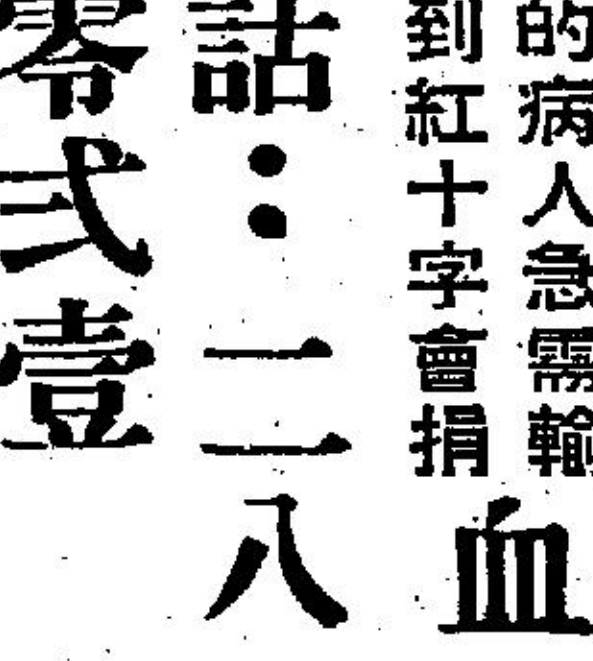 的病人急需輸
到紅十字會捐
血
話：二八
零弍壹